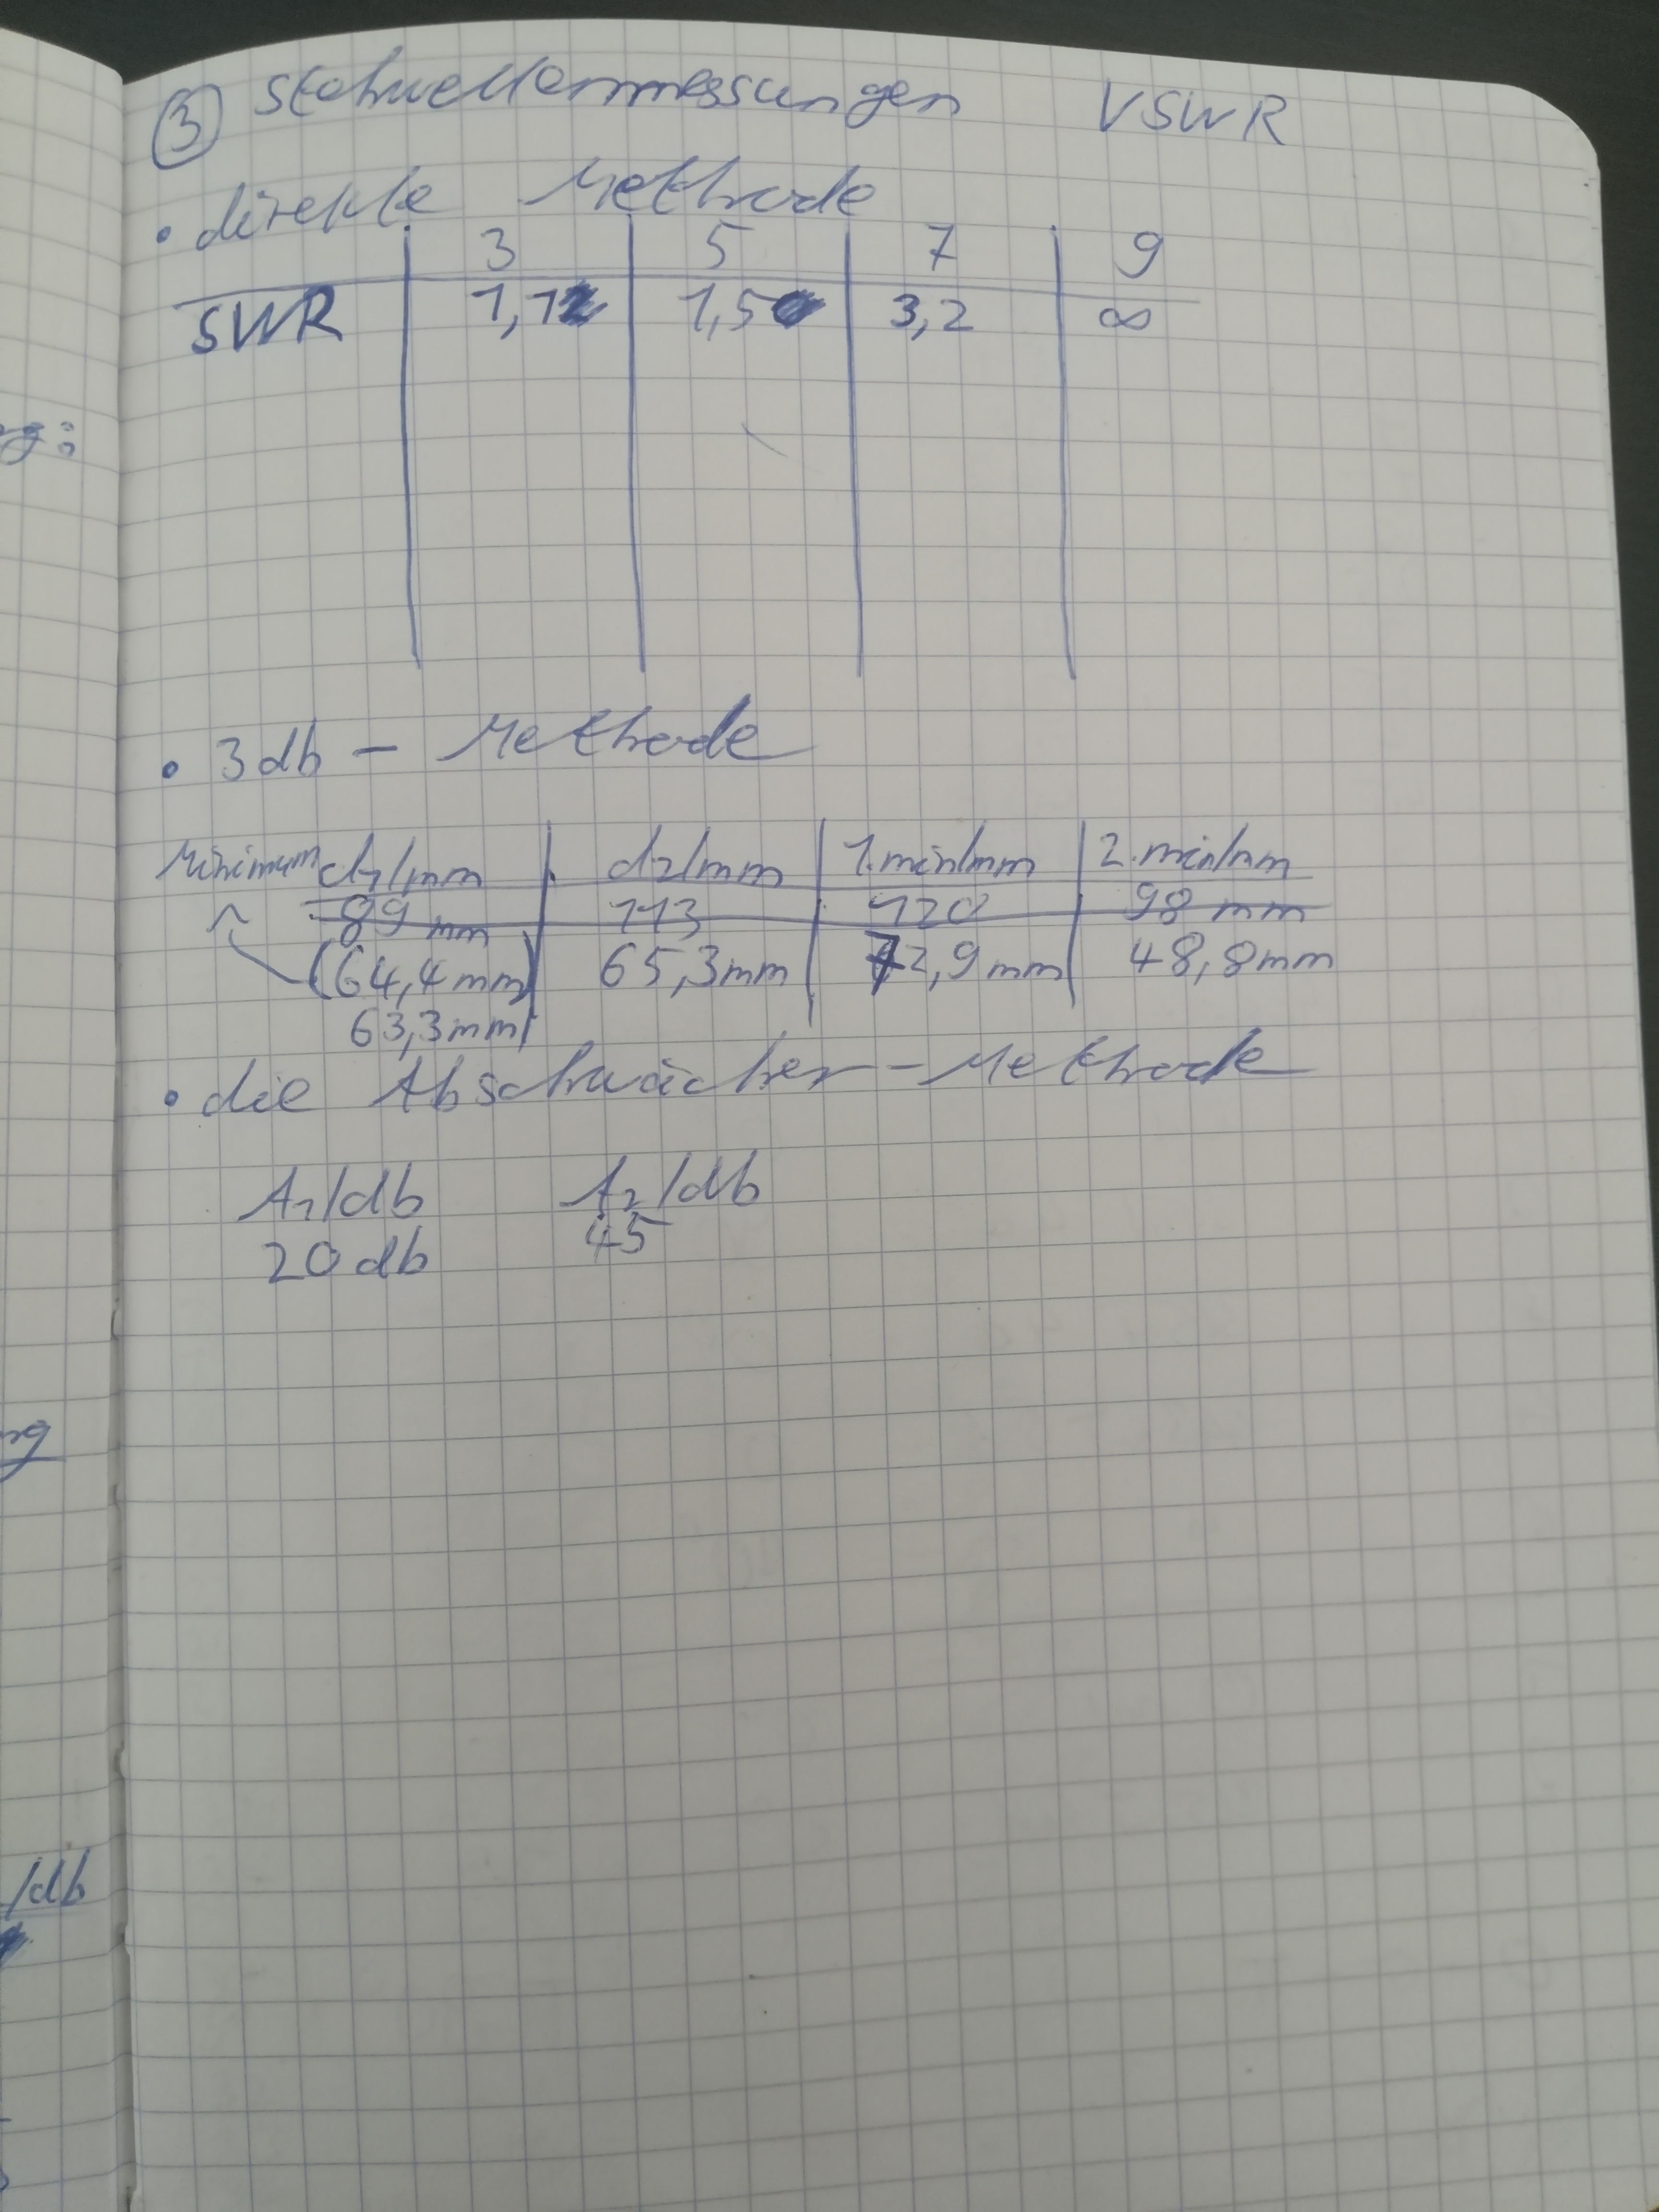 ③ Stehwellenmessungen VSWR
• direkte Methode
3 5 7 9
SWR 1,1 1,5 3,2 ∞
g:
• 3db – Methode
Minimum d1/mm d2/mm 1.min/mm 2.min/mm
89 mm 113 120 98 mm
(64,4mm) 65,3mm 72,9mm 48,8mm
63,3mm
• die Abschwächer-Methode
A1/db A2/db
20db 45
ng
/db